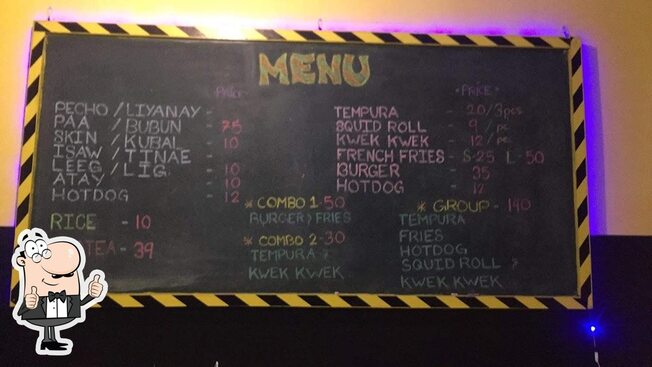 MENU
PRICE
PECHO / LIYANAY -
PAA / BUBUN - 75
SKIN / KUBAL - 10
ISAW / TINAE -
LEEG / LIG - 10
ATAY - 10
HOTDOG - 12
RICE - 10
TEA - 39
* COMBO 1 - 50
BURGER > FRIES
* COMBO 2 - 30
TEMPURA >
KWEK KWEK
- PRICE -
TEMPURA - 20/3pcs
SQUID ROLL - 9 / pc
KWEK KWEK - 12 / pc
FRENCH FRIES - S-25 L-50
BURGER - 35
HOTDOG - 12
* GROUP - 140
TEMPURA
FRIES
HOTDOG
SQUID ROLL >
KWEK KWEK